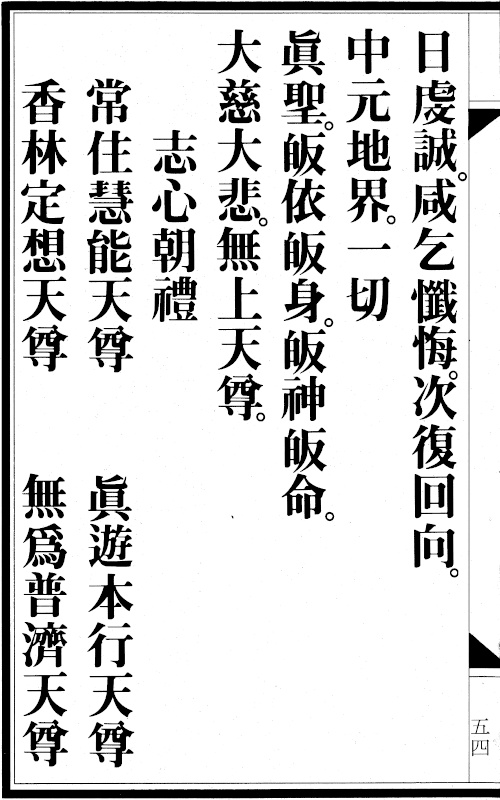 日虔誠。咸乞懺悔。次復回向。
中元地界。一切
眞聖。皈依皈身。皈神皈命。
大慈大悲。無上天尊。
志心朝禮
常住慧能天尊　眞遊本行天尊
香林定想天尊　無爲普濟天尊
五四